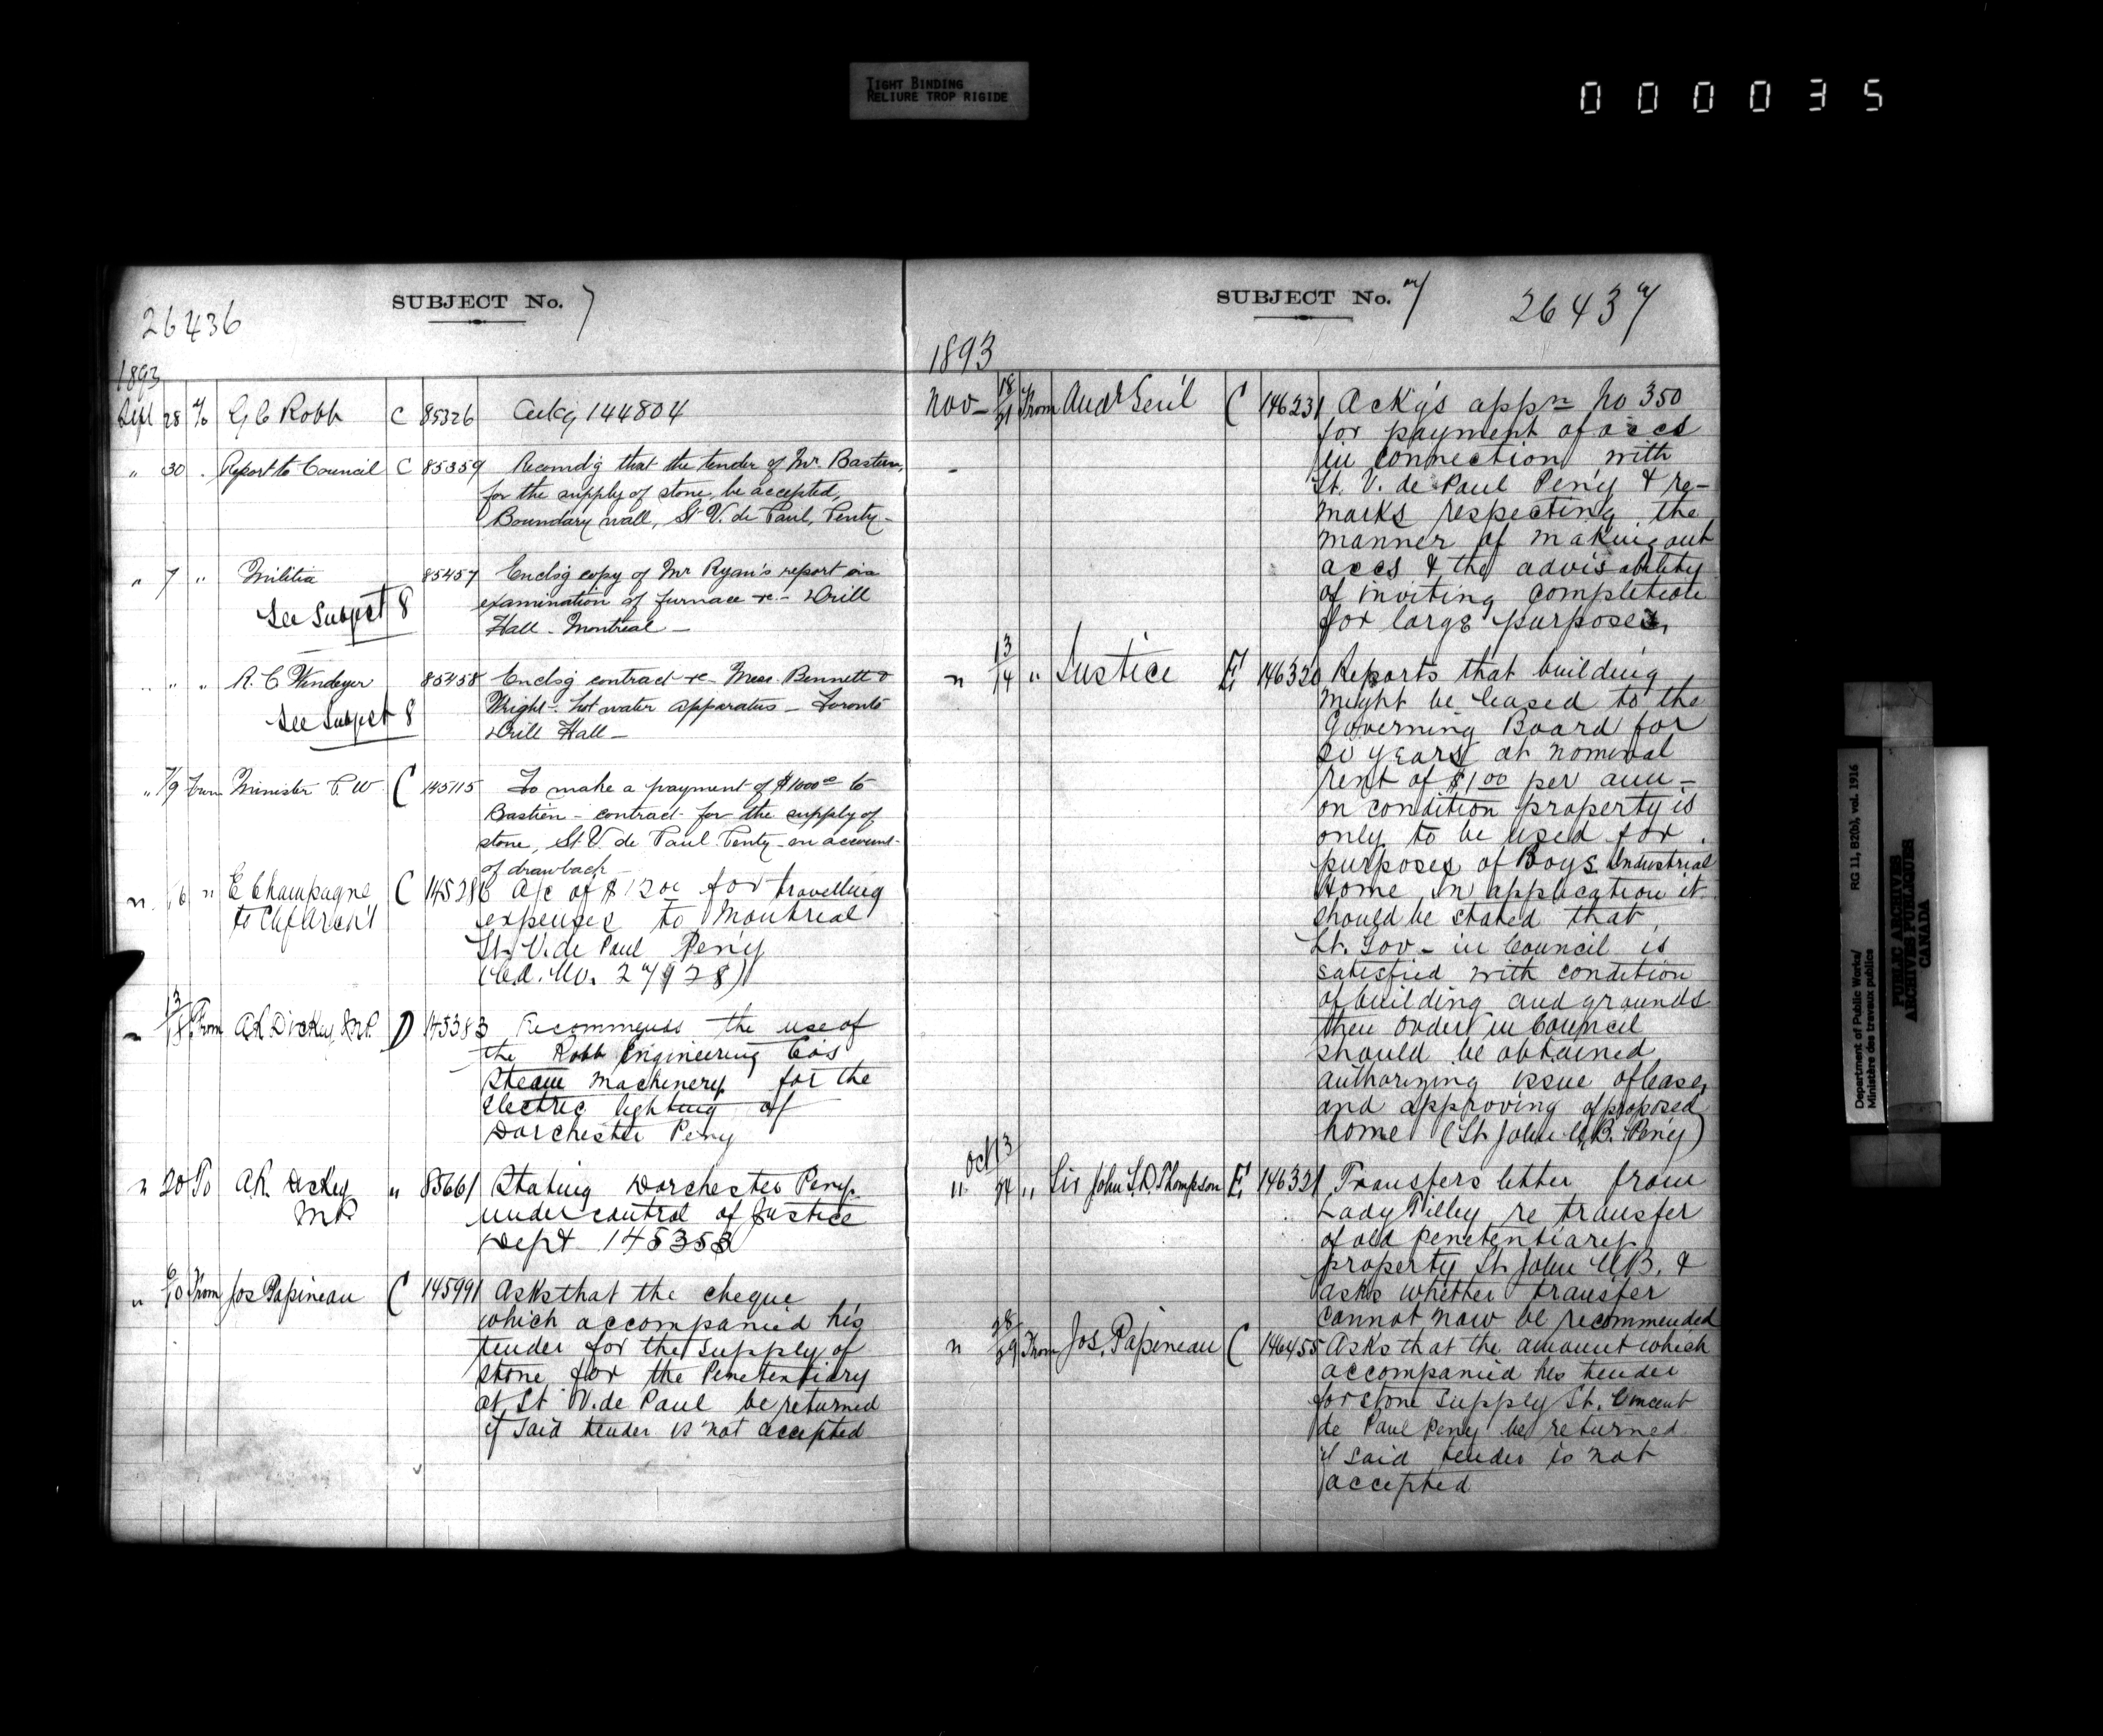 TIGHT BINDING
RELIURE TROP RIGIDE
000035
SUBJECT No. 7
26436
1893
Sept 28 To G C Robb C 85326 Ackg 144804
" 30 Report to Council C 85359 Recomdg that the tender of Mr. Bastien,
for the supply of stone, be accepted,
Boundary wall, St V. de Paul, Penty-
" 7 " Militia 85457 Enclsg copy of Mr Ryan's report on
See Subject 8
examination of furnace re - Drill
Hall - Montreal -
" " " R. C Windeyer 85458 Enclsg contract re Messr Bennett &
See Subject 8
Wright - hot water apparatus - Toronto
Drill Hall -
" 7/9 From Minister P. W C 145115 To make a payment of $1000 00 to
Bastien - contract for the supply of
stone, St. V. de Paul Penty - on account
of drawback
" 16 " E Champagne C 145286 A/c of $12 00 for travelling
to Chf Arch't
expenses to Montreal
St. V. de Paul Peny
" 13/18 From A R Dickey, M.P. D 145383 Recommends the use of
the Robb Engineering Co's
steam machinery for the
electric lighting of
Dorchester Peny
" 20 To A. R. Dickey " 85661 Stating Dorchester Peny
MP
under control of Justice
Dept 145353
" 6/10 From Jos Papineau C 145991 Asks that the cheque
which accompanied his
tender for the supply of
stone for the Penetentiary
at St V. de Paul be returned
if said tender is not accepted
SUBJECT No. 7
26437
1893
Nov - 18/21 From Audr Gen'l C 146231 Ackg's appn No 350
for payment of accs
in connection with
St. V. de Paul Peny & re-
marks respecting the
manner of making out
accs & the advisability
of inviting
for large purposes,
" 13/14 " Justice E 146320 Reports that building
might be leased to the
Governing Board for
20 years at nominal
rent of $1 00 per ann -
on condition property is
only to be used for
purposes of Boys Industrial
Home in application it
should be stated that
Lt. Gov - in Council is
satisfied with condition
of building and grounds
then Order in Council
should be obtained
authorizing issue of lease
and approving of proposed
home (St John N.B. Peny)
Oct 13
" 14 " Sir John S. D. Thompson E 146321 Transfers letter from
Lady Tilley re transfer
of old penetentiary
property St. John N.B. &
asks whether transfer
cannot now be recommended
" 28/29 From Jos. Papineau C 146455 Asks that the amount which
accompanied his tender
for stone supply St. Vincent
de Paul Peny be returned
if said tender is not
accepted
Department of Public Works/
Ministère des travaux publics
RG 11, B2(b), vol. 1916
PUBLIC ARCHIVES
ARCHIVES PUBLIQUES
CANADA